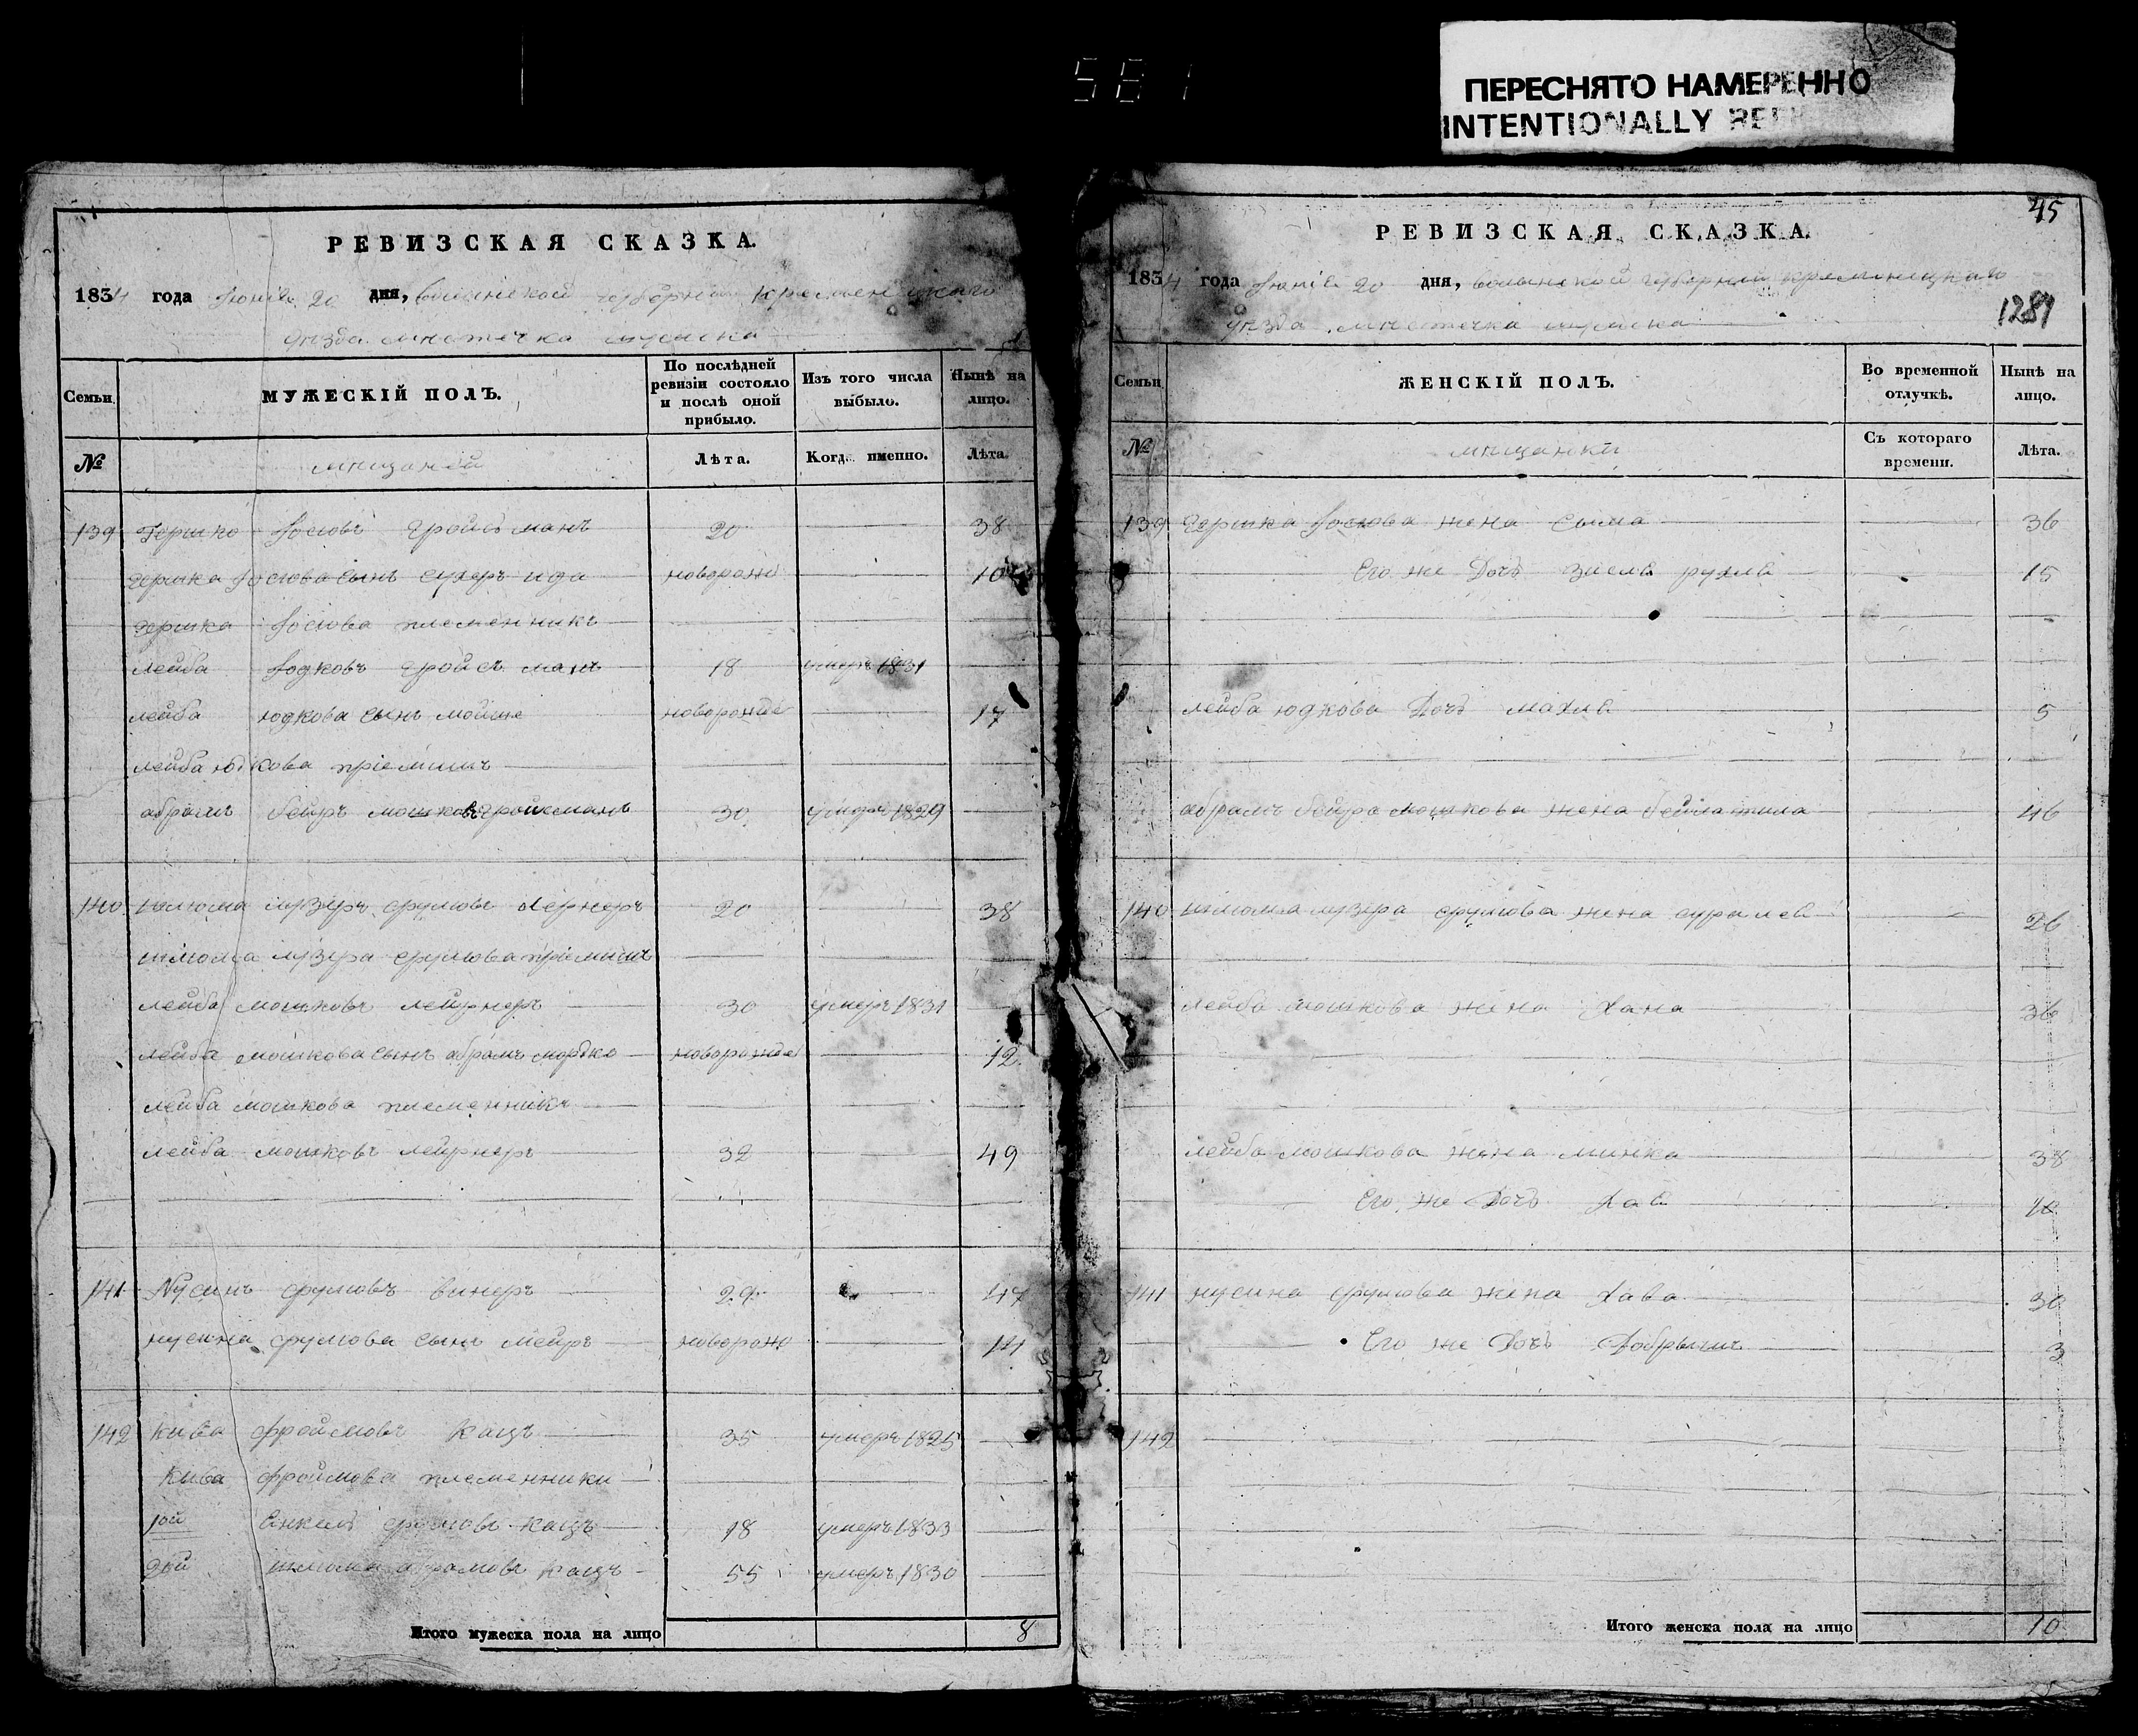 581
ПЕРЕСНЯТО НАМЕРЕННО
INTENTIONALLY
РЕВИЗСКАЯ СКАЗКА.
1834 года Іюнія 20 дня, волынской губерніи кременецкаго
уѣзда мѣстечка
Семьи. МУЖЕСКІЙ ПОЛЪ. По послѣдней ревизіи состояло и послѣ оной прибыло. Изъ того числа выбыло. Нынѣ на лицо.
№ мѣщаней Лѣта. Когда именно. Лѣта.
139 Гершко Іосіовъ Гройсъманъ 20 38
гершка Іосіова сынъ новорож 10
гершка Іосіова племенникъ
лейба Іодковъ гройсъманъ 18 умеръ 1831
лейба юдкова сынъ мойше новорожде 17
лейба юдкова пріемишъ
абрамъ бейръ мошковъ гройсманъ 30 умеръ 1829
140 шлиома лузеръ срулювъ лернеръ 20 38
шлиома лузера срулюва пріемишъ
лейба мошковъ лейрнеръ 30 умеръ 1831
лейба мошкова сынъ абрамъ мордко новорожде 12
лейба мошкова племенникъ
лейба мошковъ лейрнеръ 32 49
141 Нусинъ срулювъ винеръ 29 47
нусина срулюва сынъ меиръ новорож 14
142 кива фроимовъ кацъ 35 умеръ 1825
кива фроимова племенники
1ой Янкель кацъ 18 умеръ 1833
2ой шлиома абрамовъ кацъ 55 умеръ 1830
Итого мужеска пола на лицо 8
45
РЕВИЗСКАЯ СКАЗКА.
1834 года Іюнія 20 дня, волынской губерніи кременецкаго
1281
уѣзда мѣстечка
Семьи. ЖЕНСКІЙ ПОЛЪ. Во временной отлучкѣ. Нынѣ на лицо.
№ мѣщанки Съ котораго времени. Лѣта.
139 гершка Іосіова жена сыма 36
Его же Дочъ рухля 15
лейба юдкова Дочъ махля 5
абрамъ бейра мошкова жена 46
140 шлиома лузера срулюва жена сура лея 26
лейба мошкова жена Хана 36
лейба мошкова жена минка 38
Его же Дочъ Хая 10
141 нусина срулюва жена Хава 30
Его же Дочъ Добрышъ 3
142
Итого женска пола на лицо 10